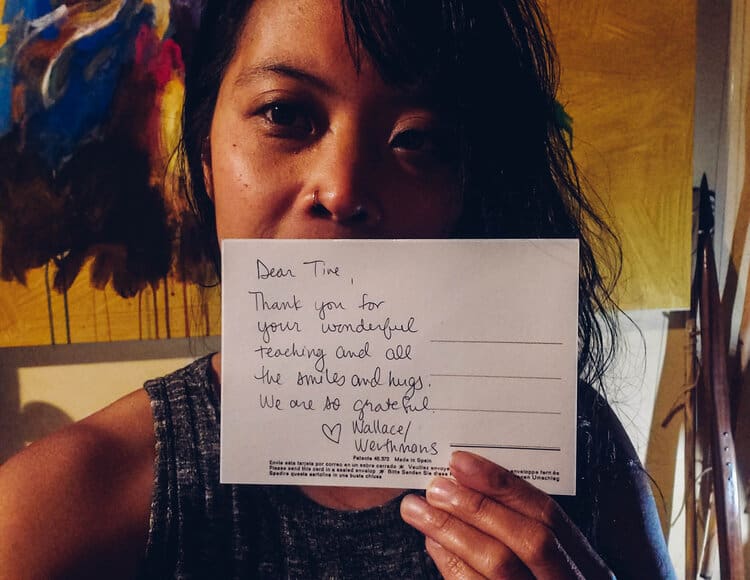 Dear Tine,
Thank you for
your wonderful
teaching and all
the smiles and hugs.
We are so grateful.
♡ Wallace/
Werthmans
Patente 45.372 Made in Spain
Envie esta tarjeta por correo en un sobre cerrado ✱ Veuillez envoyer enveloppe fermée
Please send this card in a sealed envelop ✱ Bitte Senden Sie diese Umschlag
Spedire questa cartolina in una busta chiusa